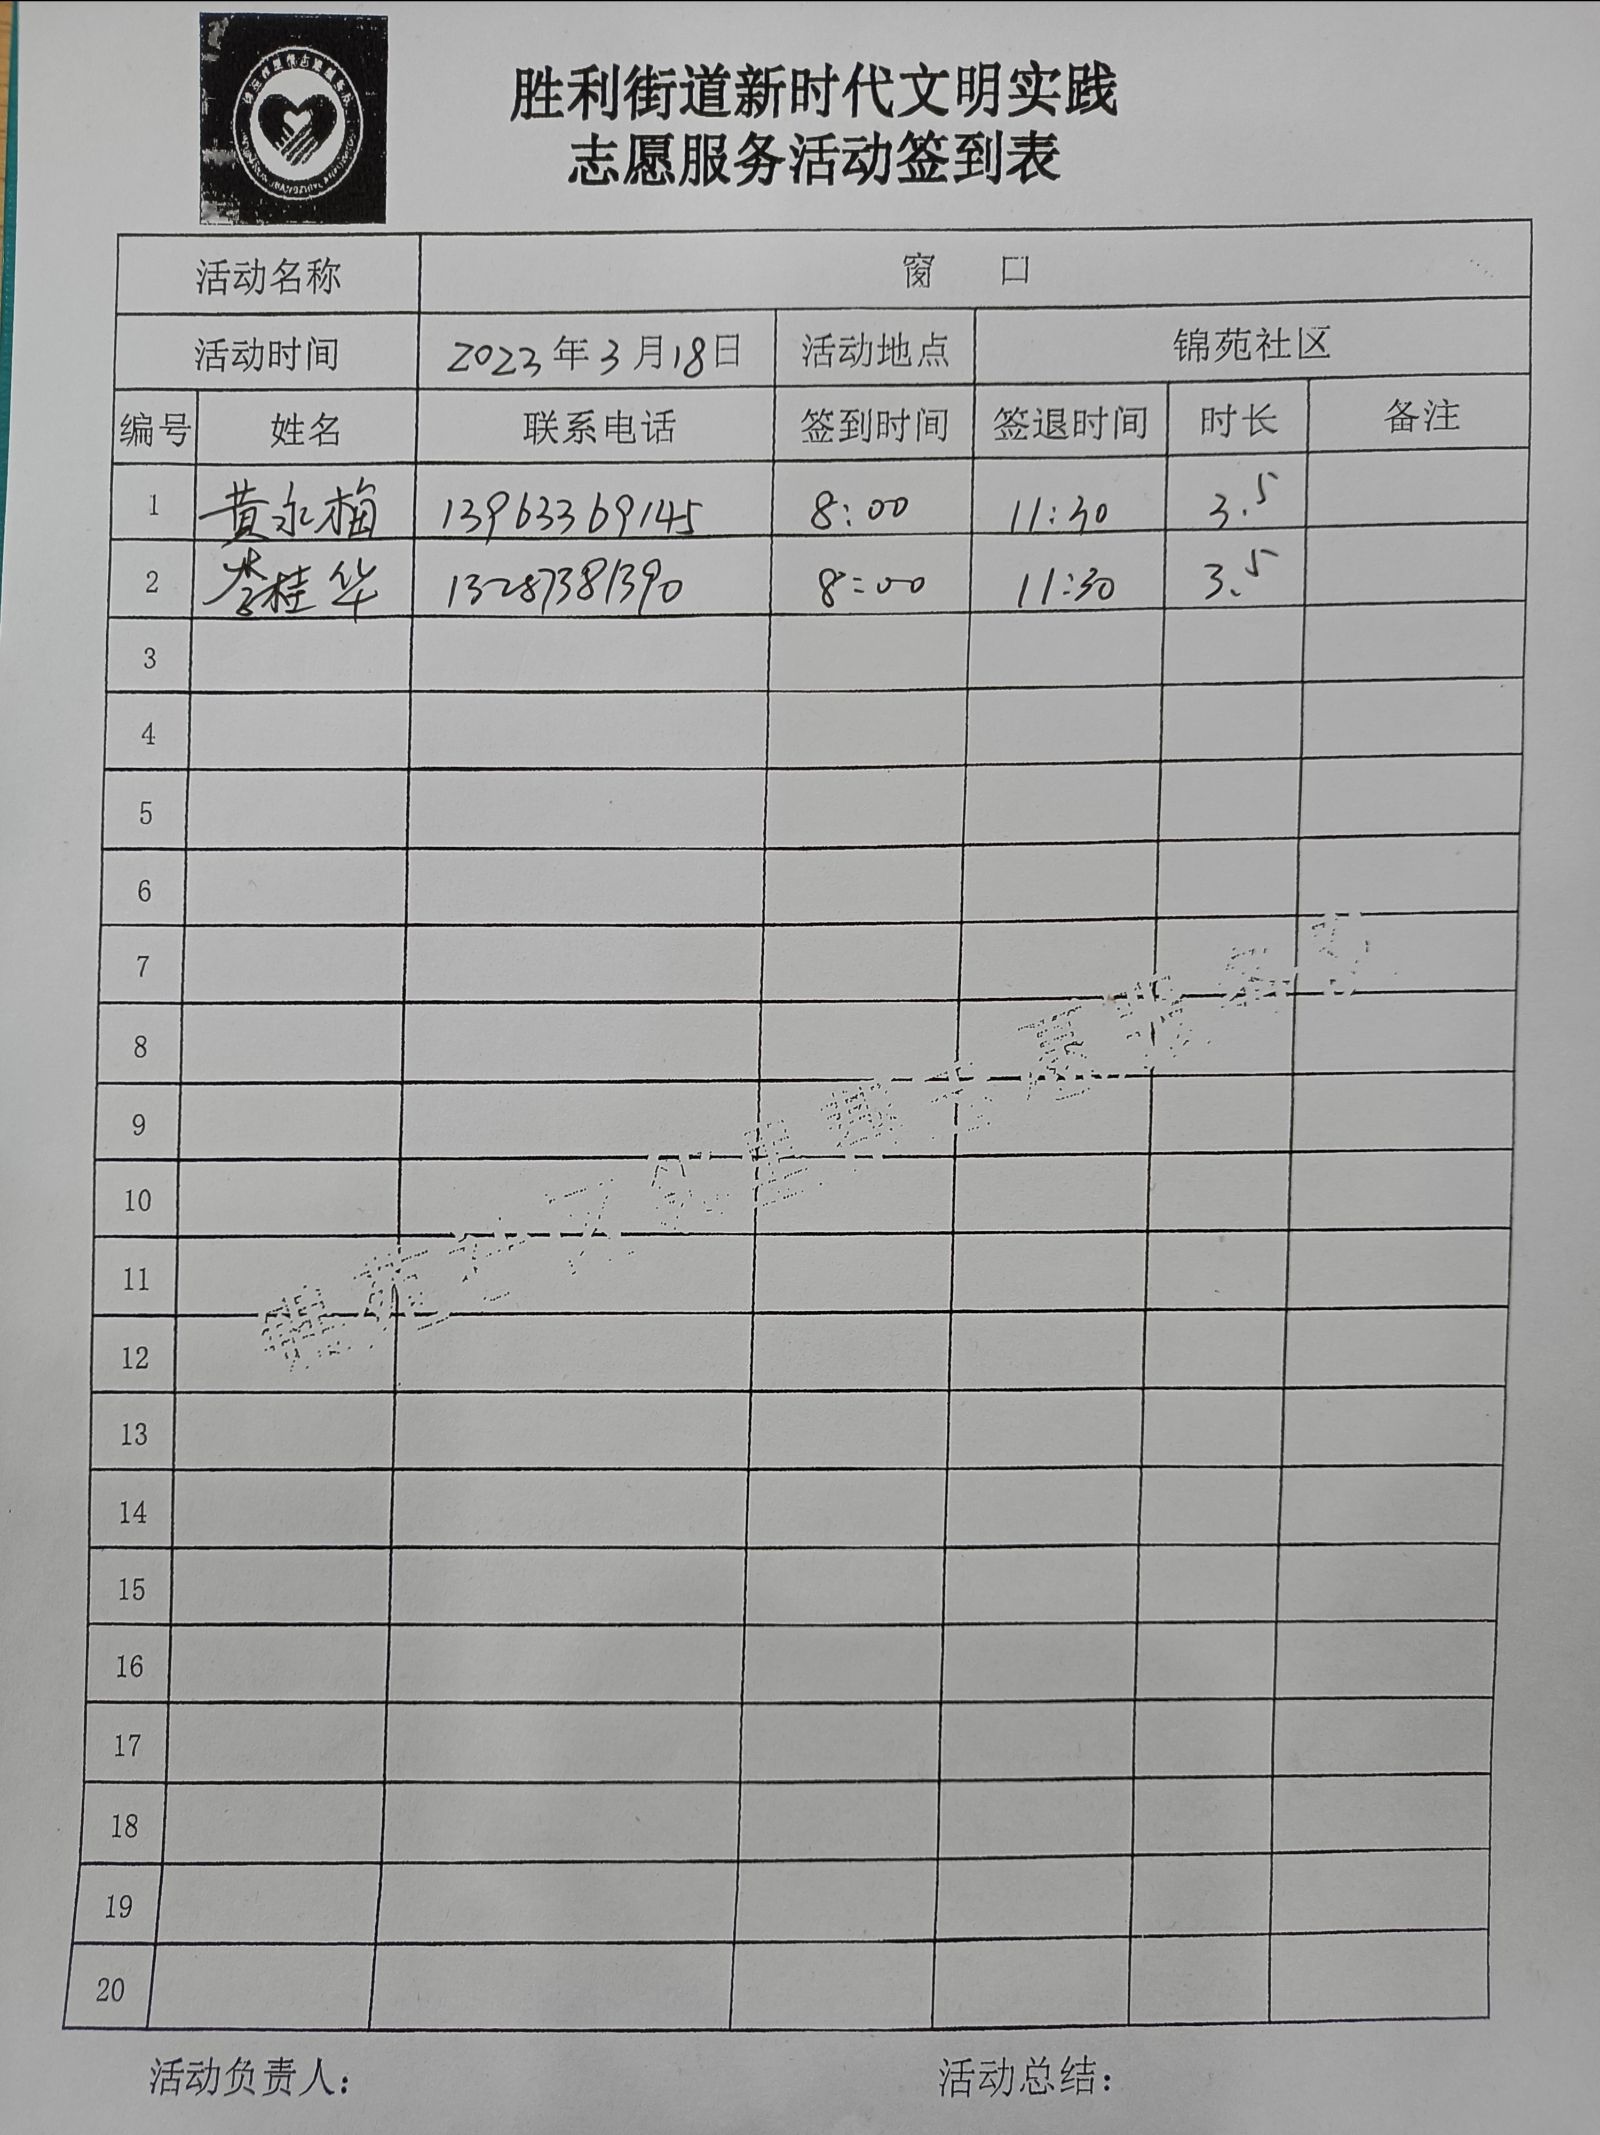 胜利街道新时代文明实践
志愿服务活动签到表
活动名称 窗 口
活动时间 2023年3月18日 活动地点 锦苑社区
编号 姓名 联系电话 签到时间 签退时间 时长 备注
1 黄永梅 13963369145 8:00 11:30 3.5
2 李桂华 13287381390 8:00 11:30 3.5
3
4
5
6
7
8
9
10
11
12
13
14
15
16
17
18
19
20
活动负责人: 活动总结: